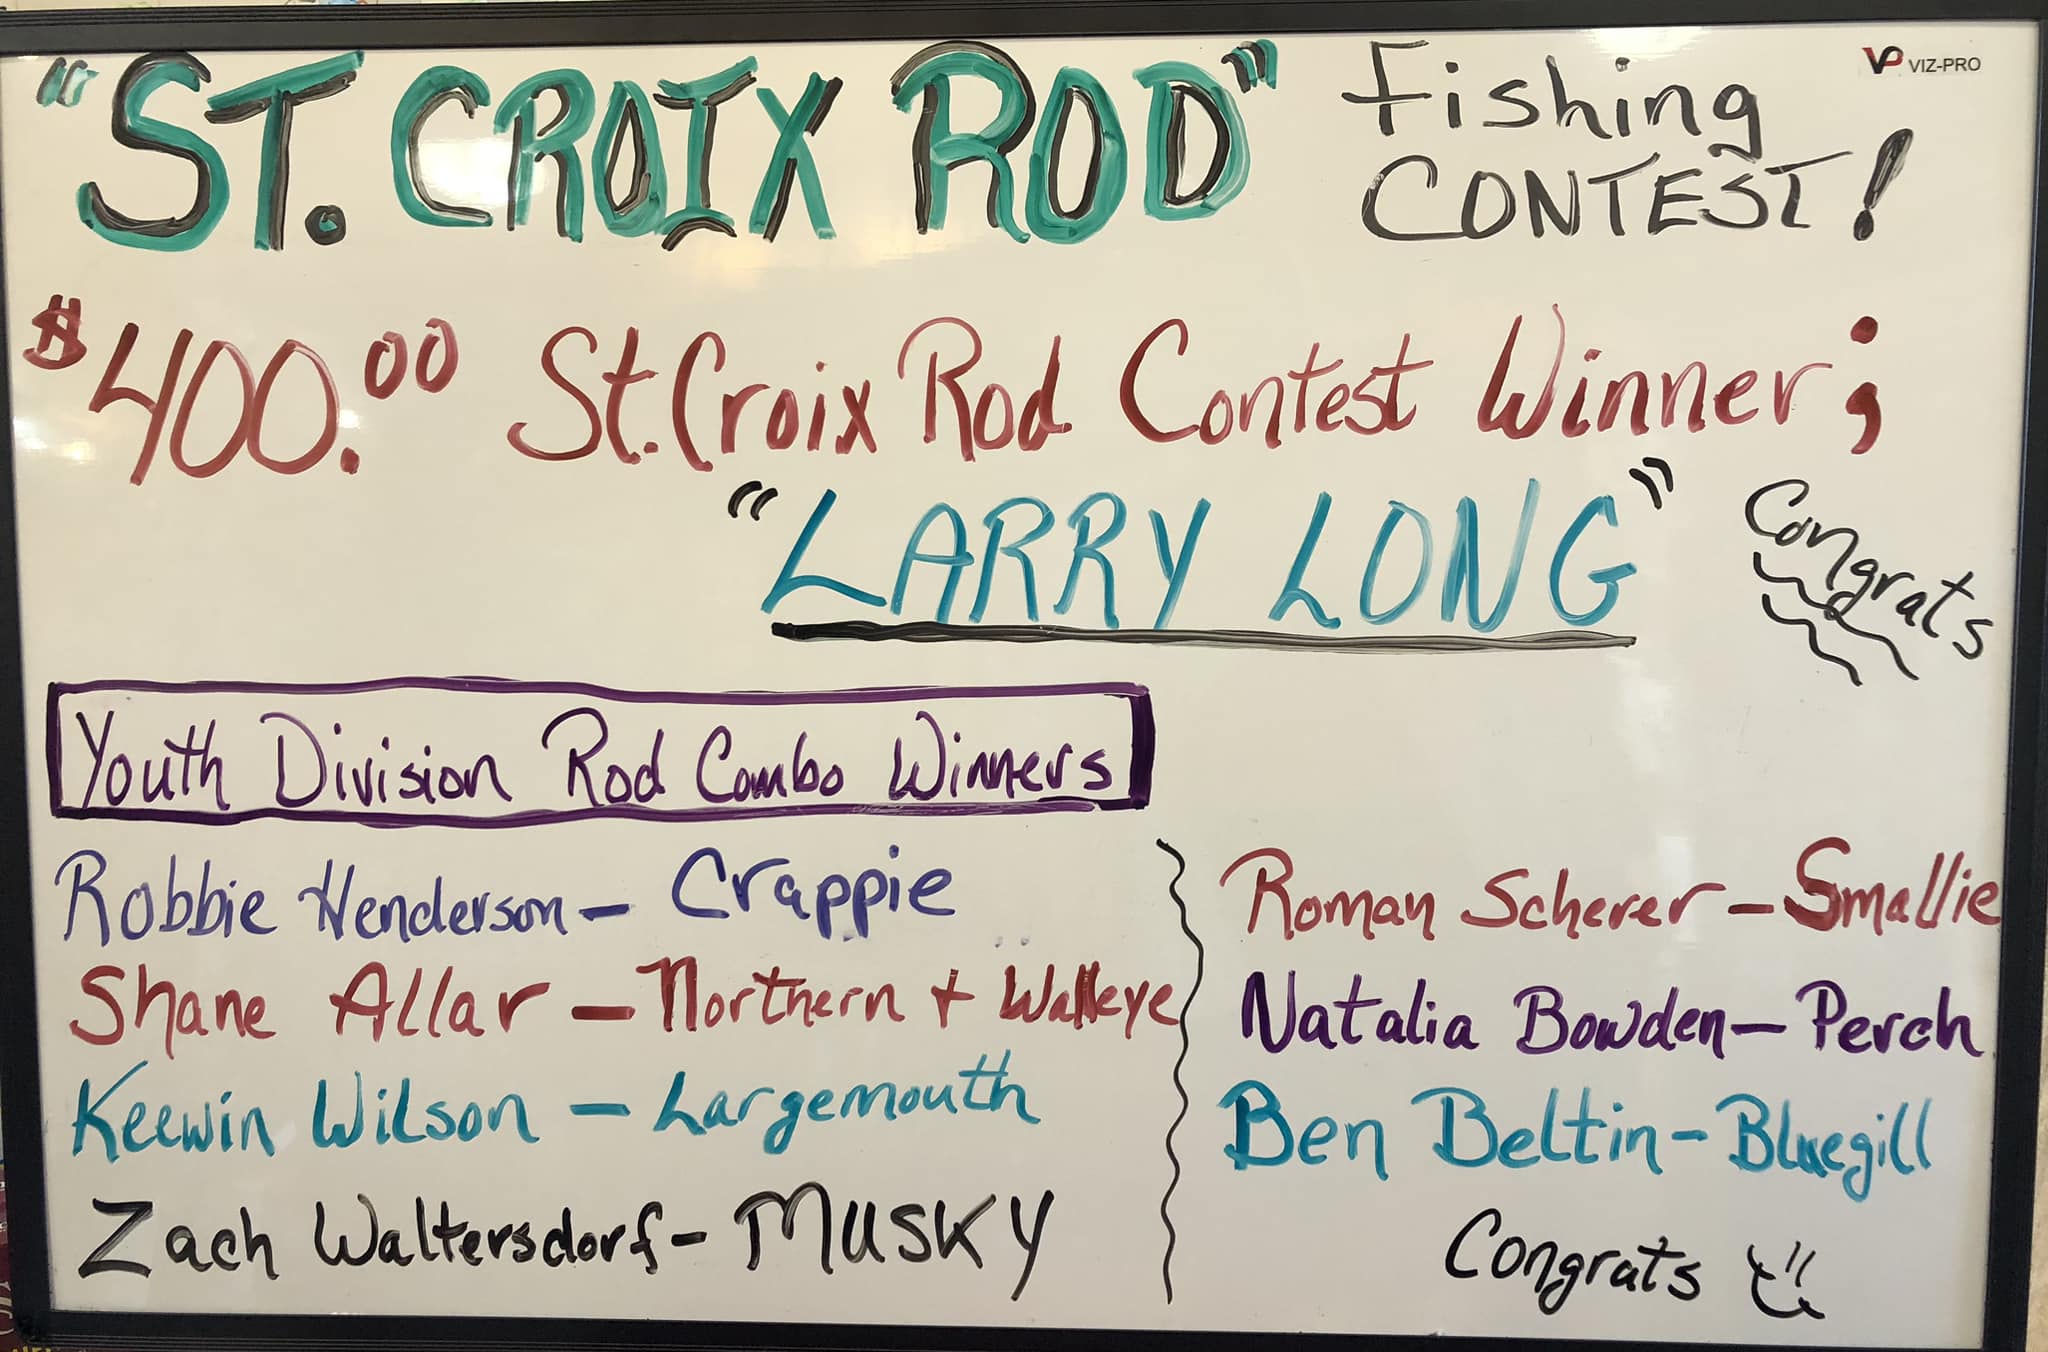 "ST. CROIX ROD" Fishing
CONTEST!
VP VIZ-PRO
$400.00 St. Croix Rod Contest Winner;
"LARRY LONG"
Congrats
Youth Division Rod Combo Winners
Robbie Henderson - Crappie
Shane Allar - Northern + Walleye
Keewin Wilson - Largemouth
Zach Waltersdorf - MUSKY
Roman Scherer - Smallie
Natalia Bowden - Perch
Ben Beltin - Bluegill
Congrats